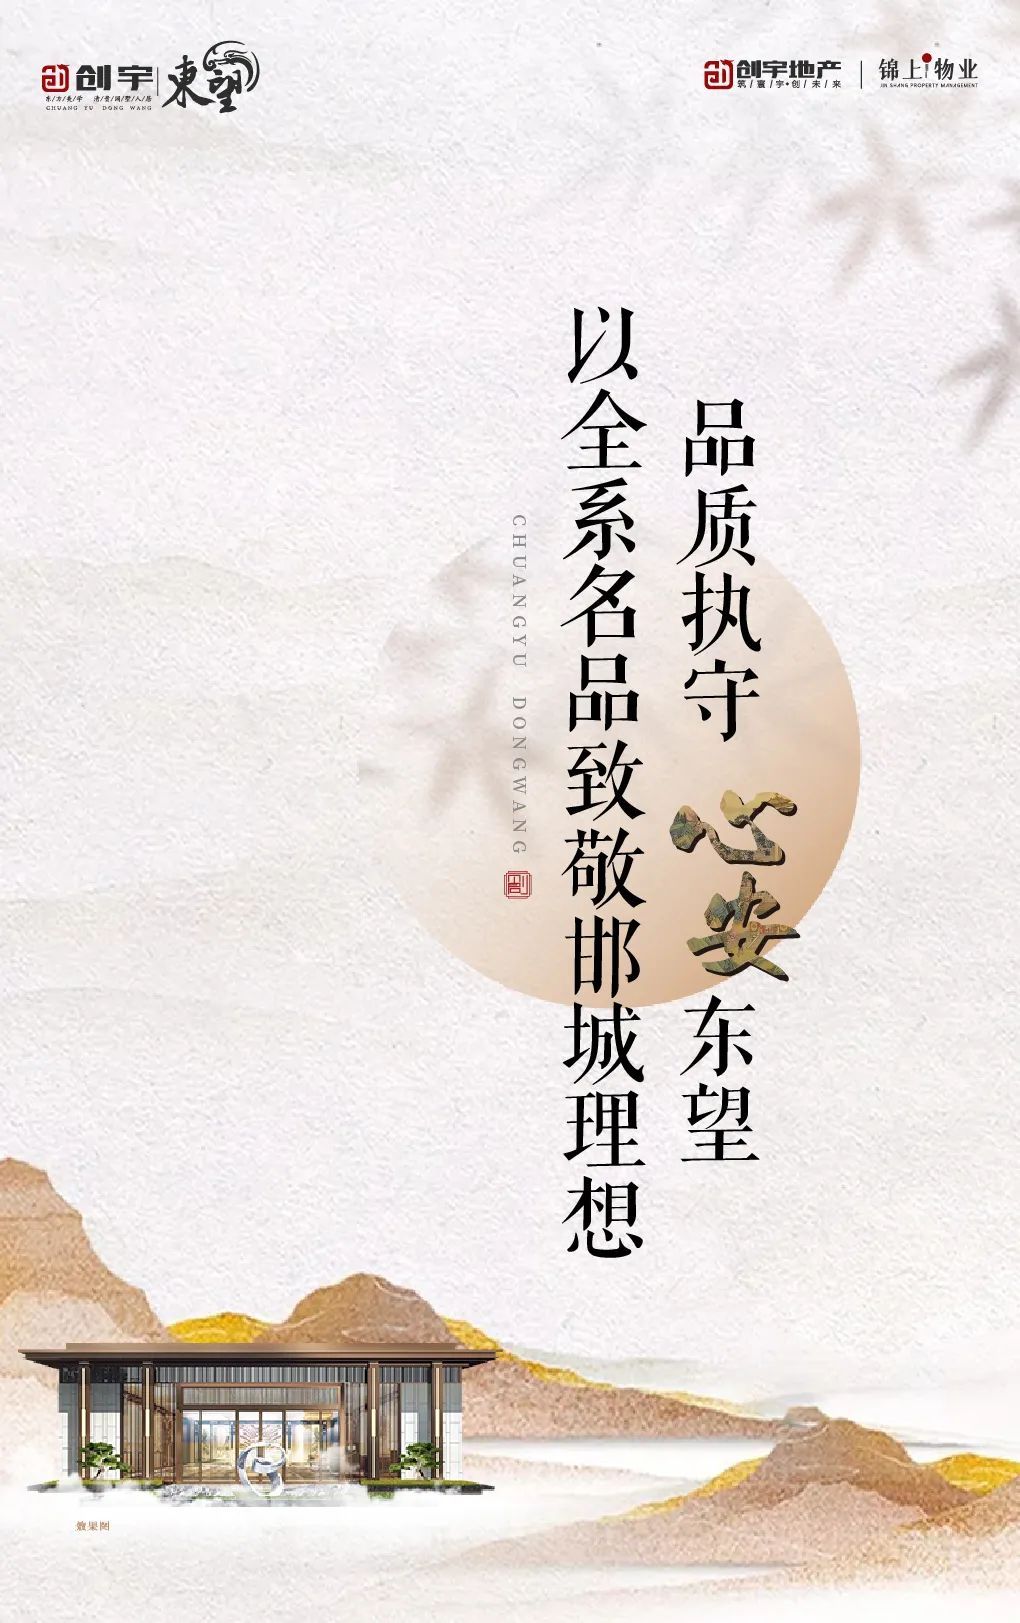 创宇
东/方/美/学 清/贵/湖/墅/人/居
CHUANG YU DONG WANG
東望
创宇地产
筑/寰/宇·创/未/来
锦上物业
JIN SHANG PROPERTY MANAGEMENT
品质执守 心安东望
以全系名品致敬邯城理想
CHUANGYU DONGWANG
创
效果图